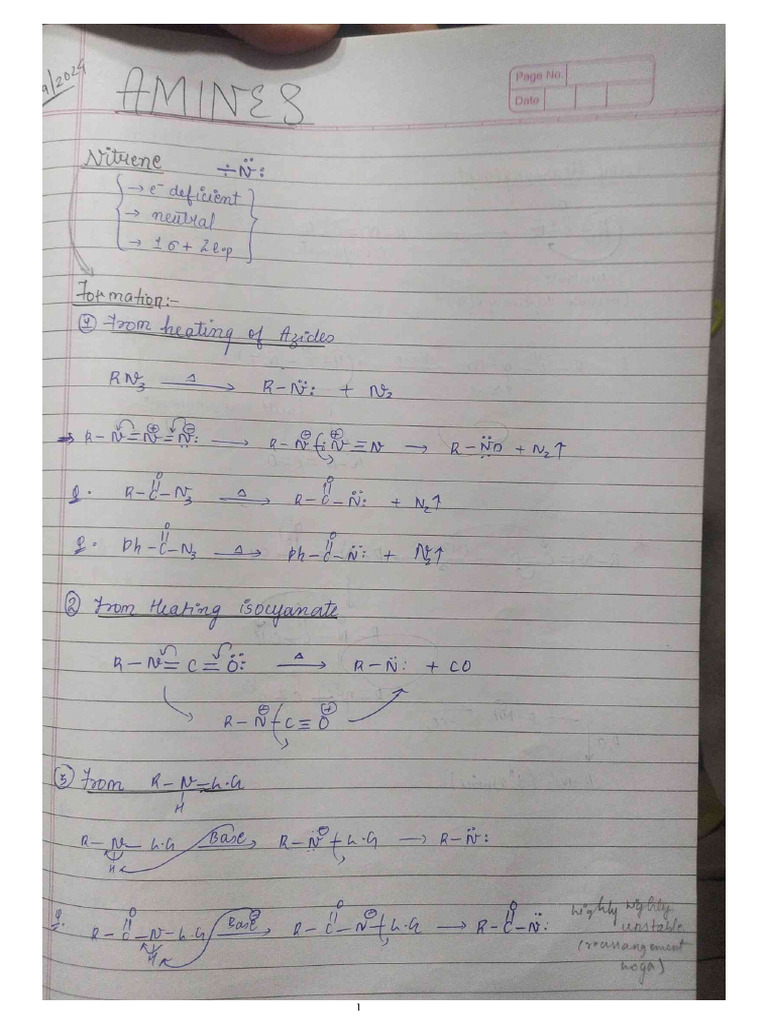 9/2024
AMINES
Page No.
Date
Nitrene ÷N̈:
→ e⁻ deficient
→ neutral
→ 1σ + 2 l.p
Formation:-
① From heating of Azides
RN₃ —Δ→ R–N̈: + N₂
⇒ R–N=N⊕=N⊖: → R–N⊖–N⊕≡N → R–N̈ + N₂↑
Q. R–C(=O)–N₃ —Δ→ R–C(=O)–N̈: + N₂↑
Q. Ph–C(=O)–N₃ —Δ→ Ph–C(=O)–N̈: + N₂↑
② From Heating isocyanate
R–N=C=Ö: —Δ→ R–N̈: + CO
R–N⊖–C≡O⊕
③ From R–N–L.G
H
R–N–L.G —Base→ R–N̈⊖–L.G → R–N̈:
H
Q. R–C(=O)–N–L.G —Base⊖→ R–C(=O)–N⊖–L.G → R–C(=O)–N̈:
H
highly highly
unstable
(rearrangement
hoga)
1